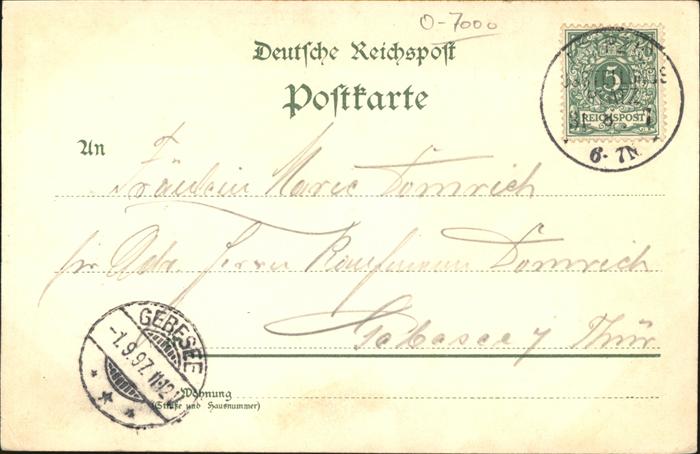 O-7000
Deutsche Reichspost
Postkarte
5
REICHSPOST
31 8
6-7N
An
Fräulein Marie Domrich
pr Adr. Herrn Kaufmann Domrich
Gebesee i/ Thür
GEBESEE
-1.9.97.11-12
Wohnung
(Straße und Hausnummer)